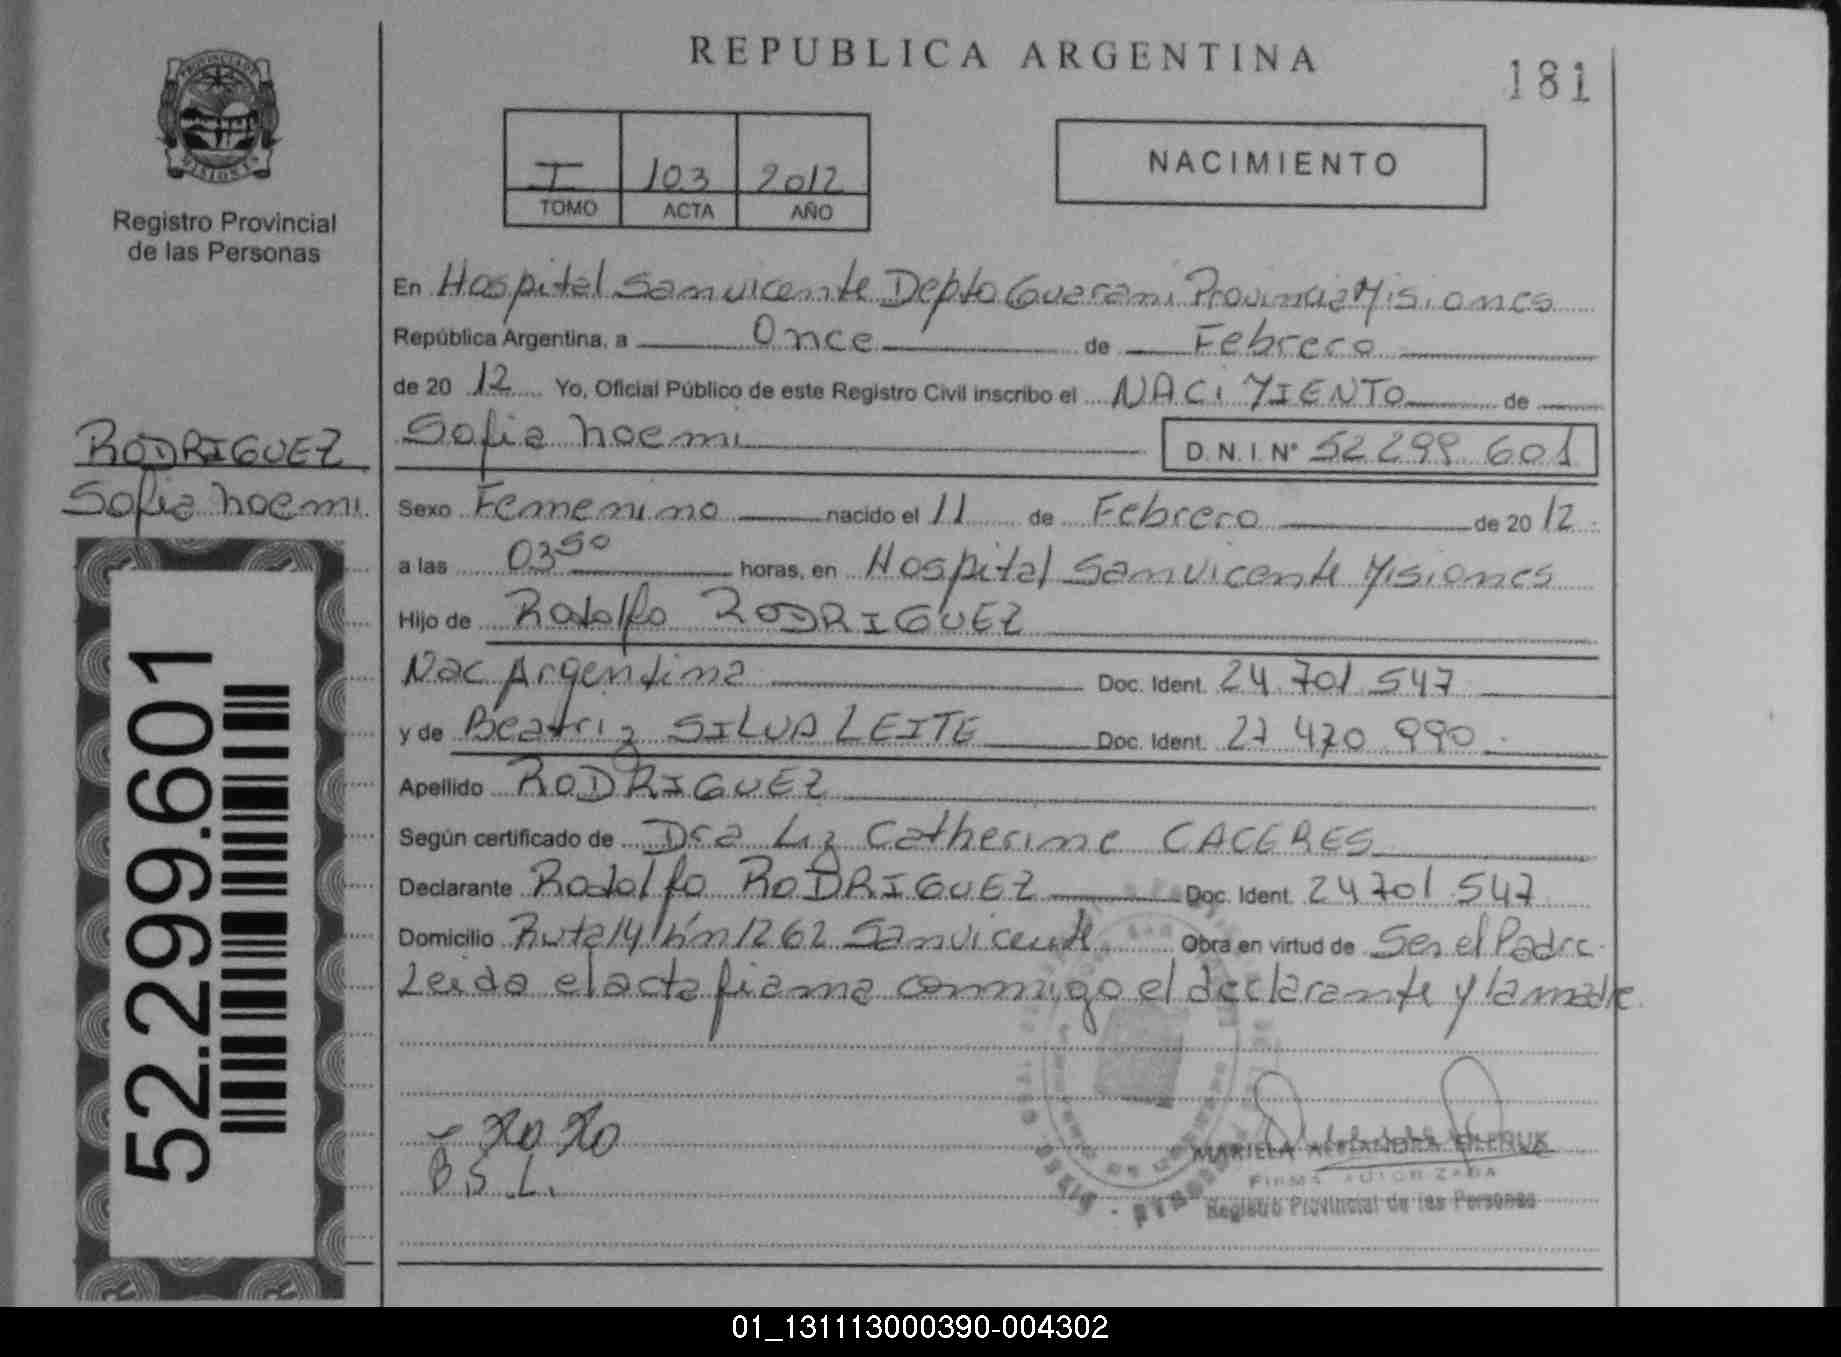 REPUBLICA ARGENTINA
181
PROVINCIA DE
MISIONES
Registro Provincial
de las Personas
I 103 2012
TOMO ACTA AÑO
NACIMIENTO
En Hospital San vicente Depto Guarani Provincia Misiones
República Argentina, a Once de Febrero
de 20 12 Yo, Oficial Público de este Registro Civil inscribo el NACIMIENTO de
Sofia Noemi D.N.I. N° 52 299 601
RODRIGUEZ
Sofia Noemi
Sexo Femenino nacido el 11 de Febrero de 20 12
a las 03 50 horas, en Hospital San vicente Misiones
Hijo de Rodolfo RODRIGUEZ
Nac Argentina Doc. Ident. 24 701 547
y de Beatriz SILVA LEITE Doc. Ident. 27 470 990
Apellido RODRIGUEZ
Según certificado de Dra Liz Catherine CACERES
Declarante Rodolfo RODRIGUEZ Doc. Ident. 24701 547
Domicilio Ruta 14 km 1262 San vicente Obra en virtud de Ser el Padre
Leida el acta firma conmigo el declarante y la madre
Ro Ro
B.S.L.
MARIELA ALEJANDRA
FIRMA AUTORIZADA
Registro Provincial de las Personas
52.299.601
01_131113000390-004302